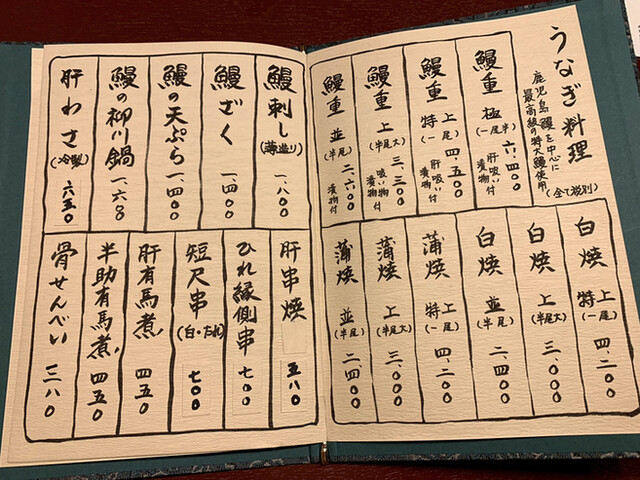 うなぎ料理
鹿児島鰻を中心に
最高級の特大鰻使用
(全て税別)
鰻重 極(一尾半) 六、四〇〇
肝吸い付
漬物付
鰻重 特上(一尾) 四、五〇〇
肝吸い付
漬物付
鰻重 上(半尾大) 三、三〇〇
吸い物付
漬物付
鰻重 並(半尾) 二、六〇〇
漬物付
白焼 特上(一尾) 四、二〇〇
白焼 上(半尾大) 三、〇〇〇
白焼 並(半尾) 二、四〇〇
蒲焼 特上(一尾) 四、二〇〇
蒲焼 上(半尾大) 三、〇〇〇
蒲焼 並(半尾) 二、四〇〇
鰻刺し(薄造り) 一、八〇〇
鰻ざく 一、四〇〇
鰻の天ぷら 一、四〇〇
鰻の柳川鍋 一、六〇〇
肝わさ(冷製) 六五〇
肝串焼 五八〇
ひれ縁側串 七〇〇
短尺串(白・たれ) 七〇〇
肝有馬煮 四五〇
半助有馬煮 四五〇
骨せんべい 三八〇